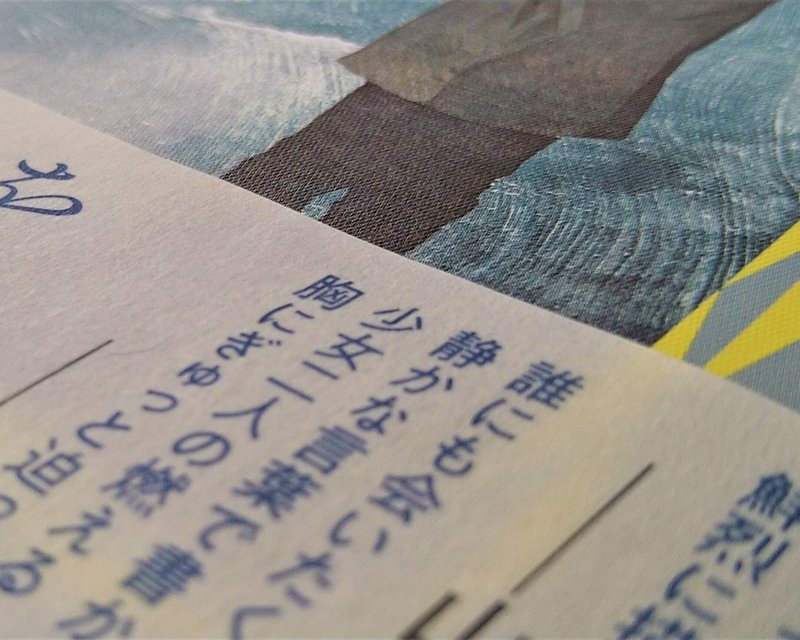 誰にも会いたく
静かな言葉で書か
少女二人の燃える
胸にぎゅっと迫